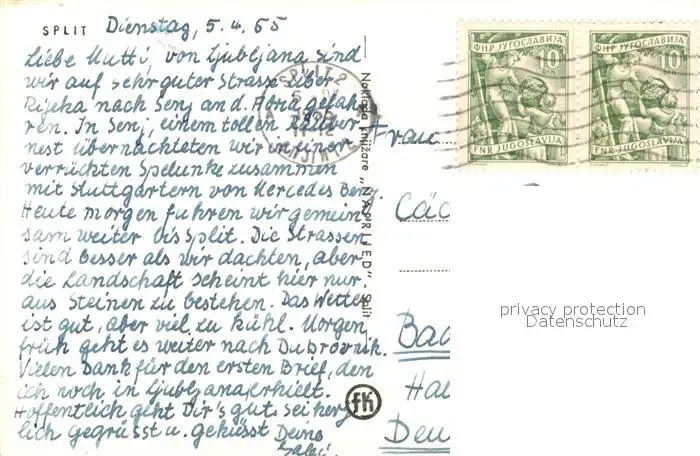 SPLIT Dienstag, 5.4.65
Liebe Mutti, von Ljubljana sind
wir auf sehr guter Strasse über
Rijeka nach Senj an d. Adria gefah
ren. In Senj, einem tollen Räuber
nest übernachteten wir in einer
verrückten Spelunke zusammen
mit Stuttgartern von Mercedes Benz.
Heute morgen fuhren wir gemein
sam weiter bis Split. Die Strassen
sind besser als wir dachten, aber
die Landschaft scheint hier nur
aus Steinen zu bestehen. Das Wetter
ist gut, aber viel zu kühl. Morgen
früh geht es weiter nach Dubrovnik.
Vielen Dank für den ersten Brief, den
ich noch in Ljubljana erhielt.
Hoffentlich geht Dir's gut. Sei herz
lich gegrüsst u. geküsst Deine
Naklada knjižare „NAPRIJED" Split
fk
SPLIT 2
ФНР ЈУГОСЛАВИЈА
10
DIN
FNR JUGOSLAVIJA
ФНР ЈУГОСЛАВИЈА
10
DIN
FNR JUGOSLAVIJA
Frau
Cäc
Bad
Hal
Deu
privacy protection
Datenschutz